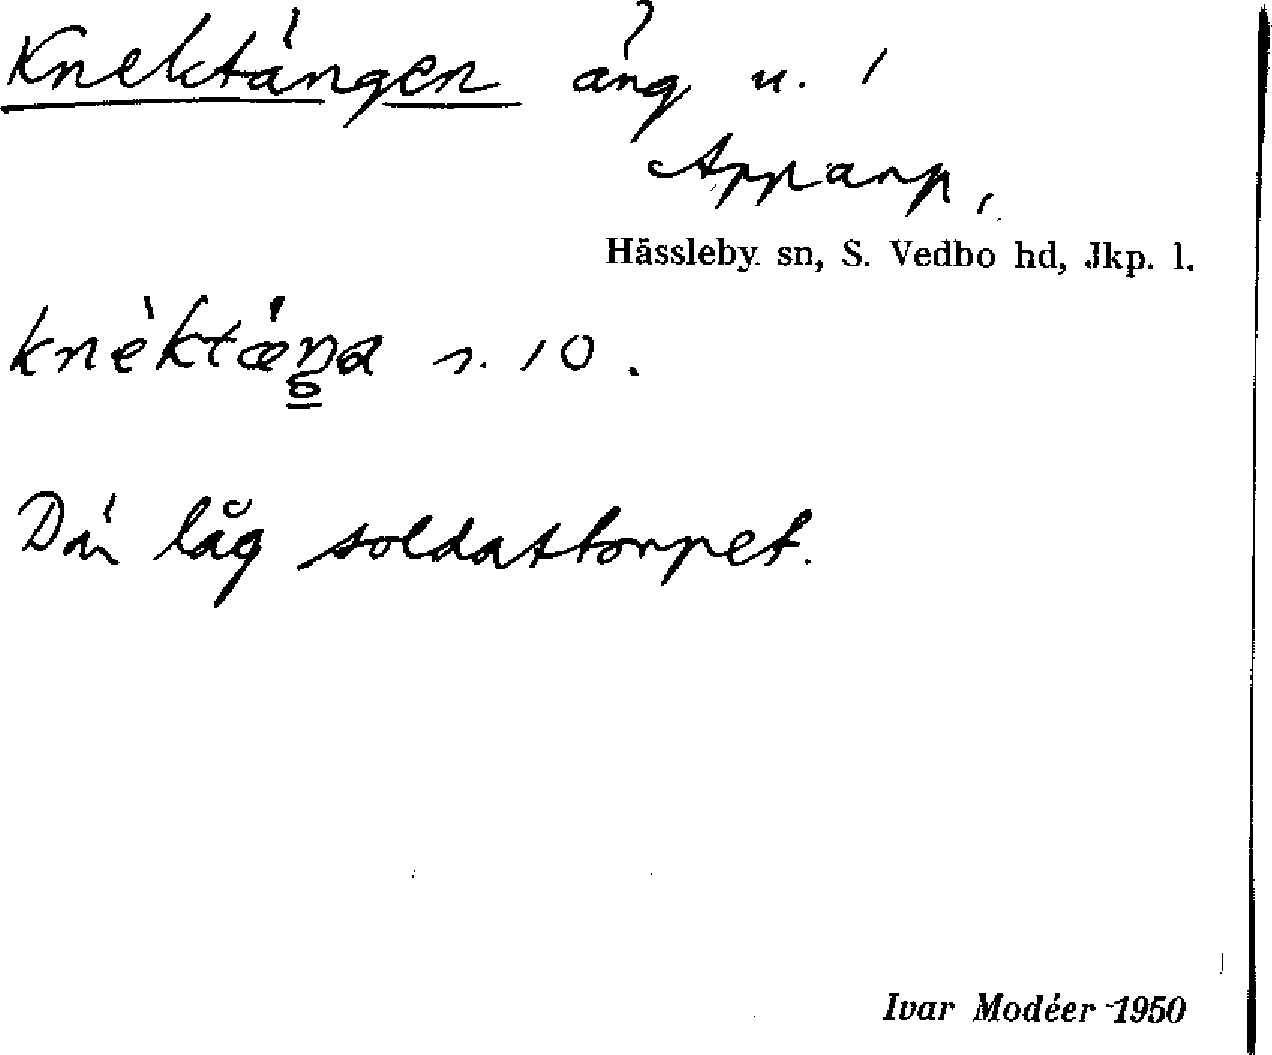 Knektängen äng u. 1
Apparp,
Hässleby sn, S. Vedbo hd, Jkp. l.
knèktæŋa s. 10.
Där låg soldattorpet.
Ivar Modéer 1950